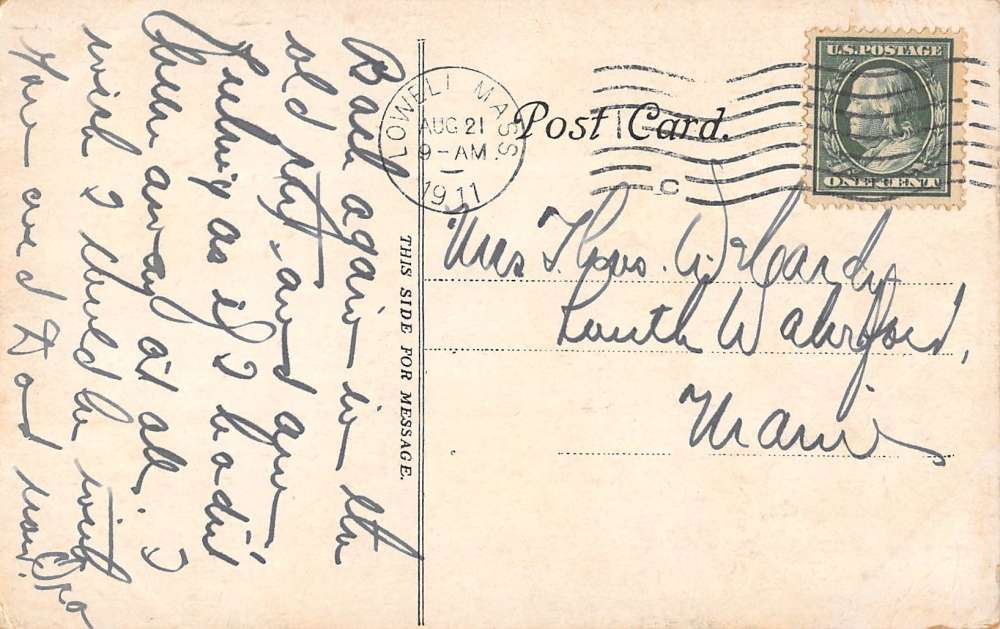 Back again in the
old place, and am
feeling as if I hadn't
been away at all. I
wish I could be with
you and Dad now.
THIS SIDE FOR MESSAGE.
LOWELL MASS
AUG 21
9-AM
1911
Post Card.
C
U.S. POSTAGE
ONE CENT
Mrs Thos. W Hardy
South Waterford,
Maine